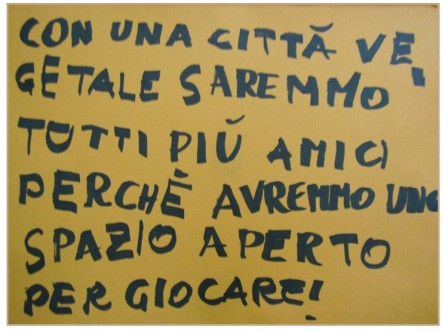 CON UNA CITTÀ VE.
GETALE SAREMMO
TUTTI PIÙ AMICI
PERCHÈ AVREMMO UNO
SPAZIO APERTO
PER GIOCARE!